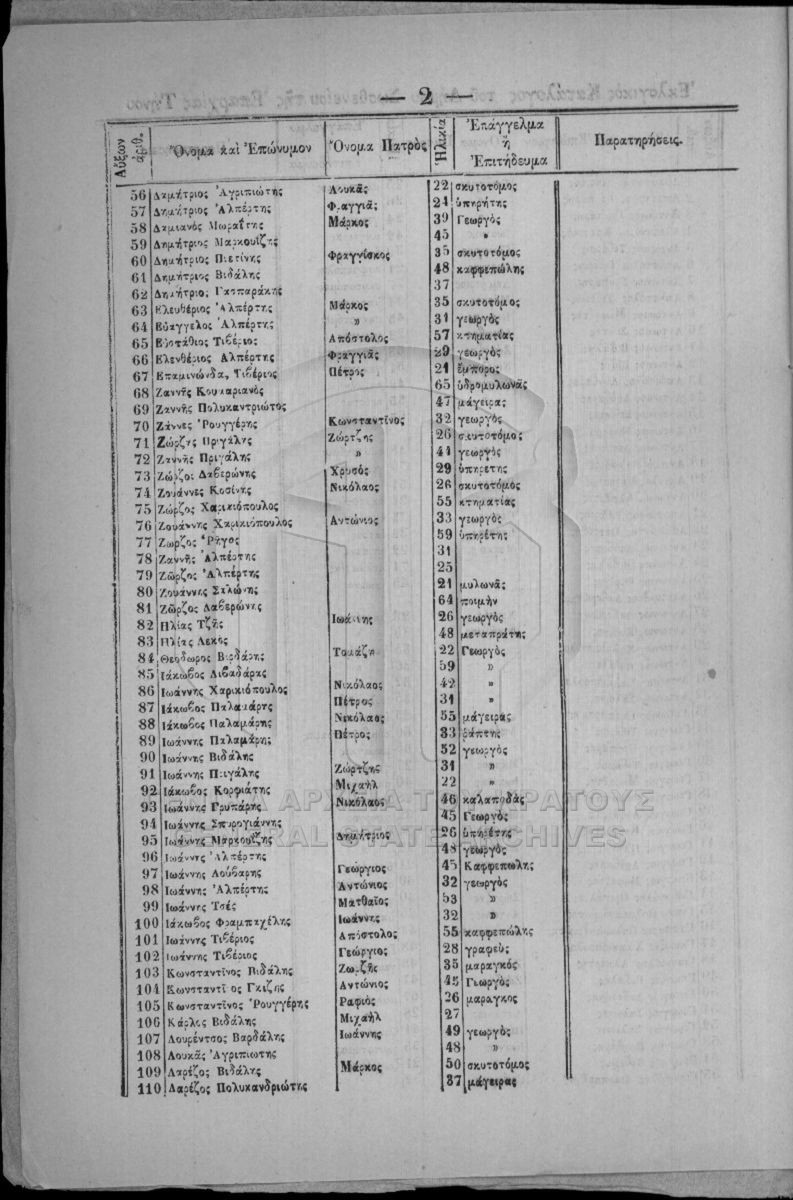 — 2 —
Αὔξων ἀριθ. Ὄνομα καὶ Ἐπώνυμον Ὄνομα Πατρὸς Ἡλικία Ἐπάγγελμα ἢ Ἐπιτήδευμα Παρατηρήσεις.
56 Δημήτριος Ἀγριπιώτης Λουκᾶς 22 σκυτοτόμος
57 Δημήτριος Ἀλπέρτης Φραγγιᾶς 24 ὑπηρήτης
58 Δαμιανὸς Μωραΐτης Μάρκος 39 Γεωργὸς
59 Δημήτριος Μαρκουΐζης 45 »
60 Δημήτριος Πιετίνης Φραγγίσκος 35 σκυτοτόμος
61 Δημήτριος Βιδάλης 48 καφφεπώλης
62 Δημήτριος Γασπαράκης 37
63 Ελευθέριος Ἀλπέρτης Μάρκος 35 σκυτοτόμος
64 Εὐάγγελος Ἀλπέρτης » 31 γεωργὸς
65 Εὐστάθιος Τιβέριος Απόστολος 57 κτηματίας
66 Ελενθέριος Αλπέρτης Φραγγιᾶς 29 γεωργὸς
67 Επαμινώνδας Τιβέριος Πέτρος 21 ἔμπορος
68 Ζαννῆς Κουμαριανὸς 65 ὑδρομυλωνᾶς
69 Ζαννῆς Πολυκαντριώτος 47 μάγειρας
70 Ζάννες Ῥουγγέρης Κωνσταντῖνος 32 γεωργὸς
71 Ζώρζης Πριγάλης Ζώρτζης 26 σκυτοτόμος
72 Ζαννῆς Πριγάλης » 44 γεωργὸς
73 Ζώρζος Δαβερώνης Χρυσός 29 ὑπηρέτης
74 Ζουάννες Κοσίνης Νικόλαος 26 σκυτοτόμος
75 Ζώρζος Χαρικιόπουλος 55 κτηματίας
76 Ζουάννης Χαρικιόπουλος Αντώνιος 33 γεωργὸς
77 Ζωρζος Ῥήγος 59 ὑπηρέτης
78 Ζαννῆς Ἀλπέρτης 31
79 Ζῶρζος Ἀλπέρτης 25
80 Ζουάννης Σαλώνης 21 μυλωνᾶς
81 Ζῶρζος Δαβερώνης 64 ποιμὴν
82 Ηλίας Τζῆς Ιωάννης 26 γεωργὸς
83 Ηλίας Λεκὸς 48 μεταπράτης
84 Θεόδωρος Βιρδάρης Τομάζη 22 Γεωργὸς
85 Ιάκωβος Λιβαδάρας 59 »
86 Ιωάννης Χαρικιόπουλος Νικόλαος 42 »
87 Ιάκωβος Παλαμάρης Πέτρος 31 »
88 Ιάκωβος Παλαμάρης Νικόλαος 55 μάγειρας
89 Ιωάννης Παλαμάρης Πέτρος 33 ῥάπτης
90 Ιωάννης Βιδάλης 52 γεωργὸς
91 Ιωάννης Πριγάλης Ζώρτζης 31 »
92 Ιάκωβος Κορφιάτης Μιχαὴλ 22 »
93 Ιωάννης Γρυπάρης Νικόλαος 46 καλαποδὰς
94 Ιωάννης Σπυρογιάννης 45 Γεωργὸς
95 Ιωάννης Μαρκουΐζης Δημήτριος 26 ὑπηρέτης
96 Ιωάννης Ἀλπέρτης 48 γεωργὸς
97 Ιωάννης Λούβαρης Γεώργιος 45 Καφφεπωλης
98 Ιωάννης Ἀλπέρτης Αντώνιος 32 γεωργὸς
99 Ιωάννης Τσές Ματθαῖος 53 »
100 Ιάκωβος Φραμπαχέλης Ιωάννης 32 »
101 Ιωάννης Τιβέριος Απόστολος 55 καφφεπώλης
102 Ιωάννης Τιβέριος Γεώργιος 28 γραφεὺς
103 Κωνσταντῖνος Βιδάλης Ζωρζῆς 35 μαραγκός
104 Κωνσταντῖνος Γκίζης Αντώνιος 45 Γεωργὸς
105 Κωνσταντῖνος Ῥουγγέρης Ραφιὸς 26 μαραγκος
106 Κάρλος Βιδάλης Μιχαὴλ 27
107 Λουρέντσος Βαρδάλης Ιωάννης 49 γεωργὸς
108 Λουκᾶς Ἀγριπιωτης 48 »
109 Λαρέζος Βιδάλης Μάρκος 50 σκυτοτόμος
110 Λαρέζος Πολυκανδριώτης 37 μάγειρας